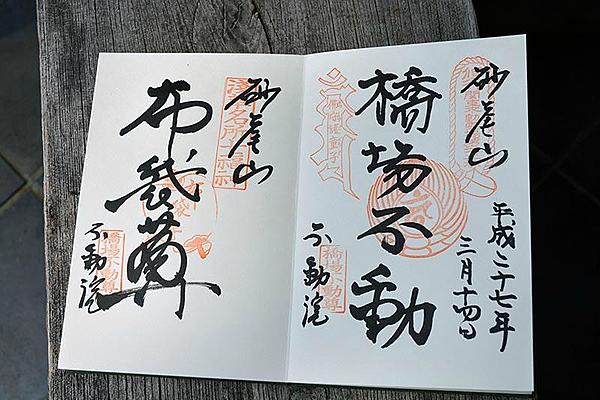 砂尾山
平成二十七年
三月十四日
橋場不動
不動院
橋場不動尊
砂尾山
浅草名所七福神
布袋尊
不動院
橋場不動尊